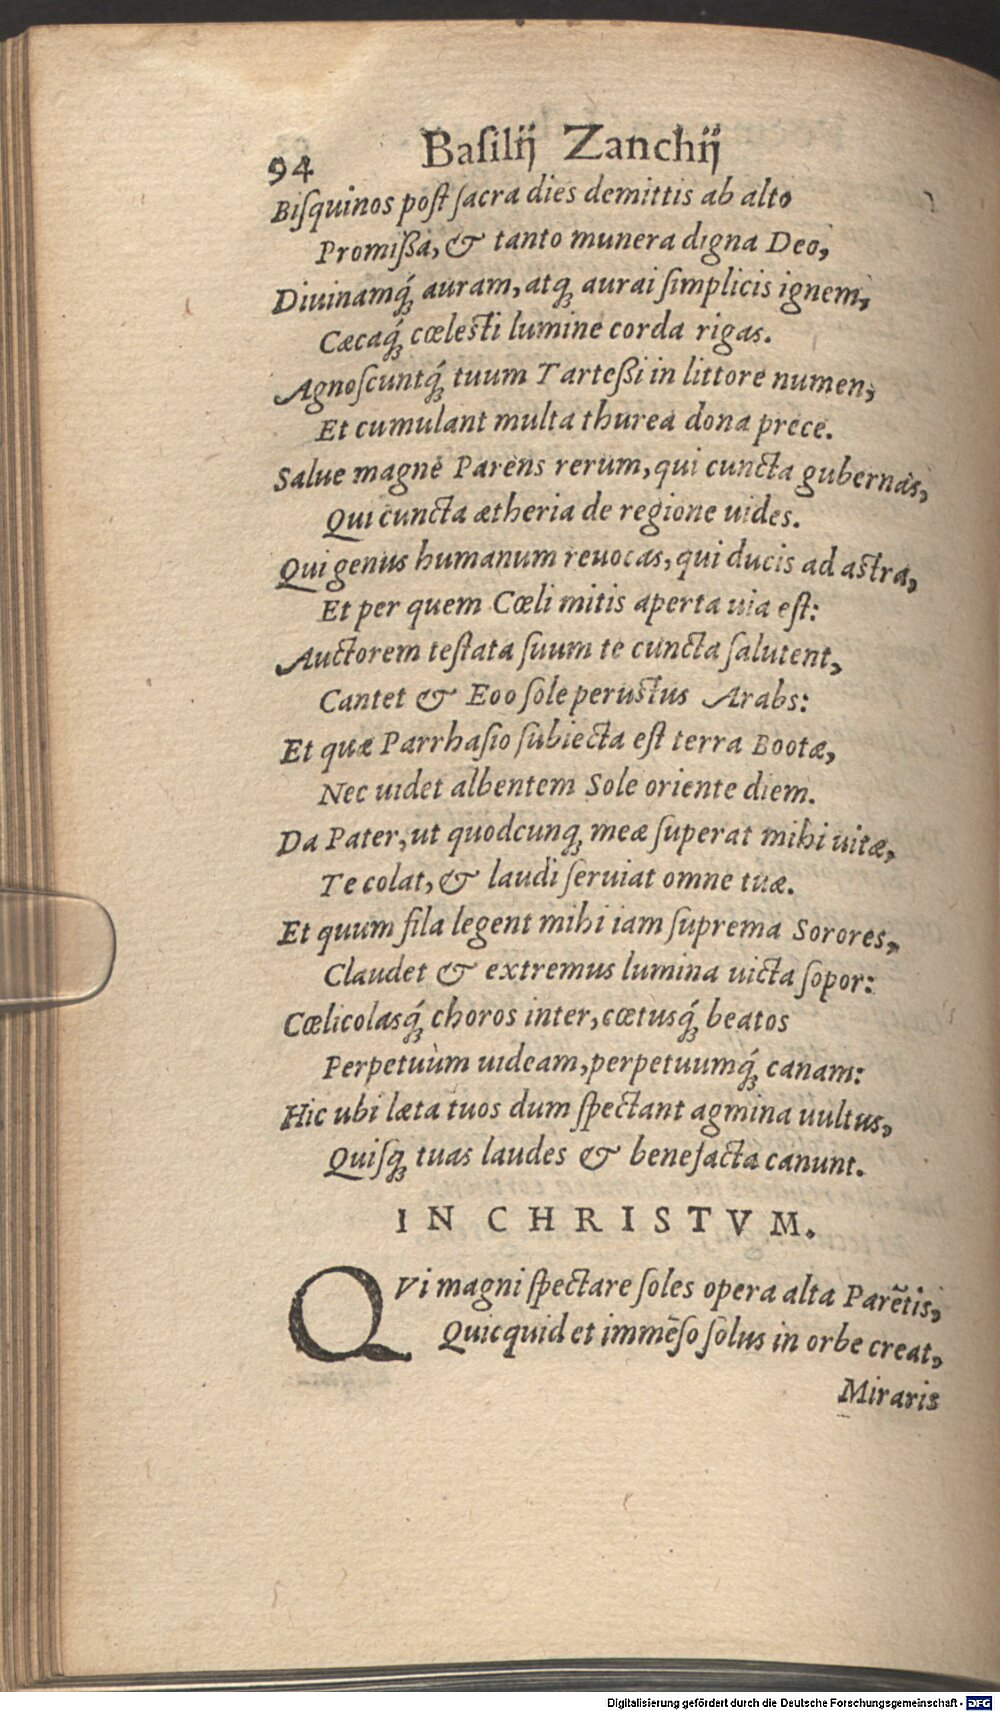 94 Baſilij Zanchij
Biſquinos poſt ſacra dies demittis ab alto
Promißa, & tanto munera digna Deo,
Diuinamq́; auram, atq; aurai ſimplicis ignem,
Cæcaq́; cœleſti lumine corda rigas.
Agnoſcuntq́; tuum Tarteßi in littore numen,
Et cumulant multa thurea dona prece.
Salue magne Parens rerum, qui cuncta gubernas,
Qui cuncta ætheria de regione uides.
Qui genus humanum reuocas, qui ducis ad aſtra,
Et per quem Cœli mitis aperta uia eſt:
Auctorem teſtata ſuum te cuncta ſalutent,
Cantet & Eoo ſole peruſtus Arabs:
Et quæ Parrhaſio ſubiecta eſt terra Bootæ,
Nec uidet albentem Sole oriente diem.
Da Pater, ut quodcunq; meæ ſuperat mihi uitæ,
Te colat, & laudi ſeruiat omne tuæ.
Et quum fila legent mihi iam ſuprema Sorores,
Claudet & extremus lumina uicta ſopor:
Cœlicolasq́; choros inter, cœtusq́; beatos
Perpetuùm uideam, perpetuumq́; canam:
Hic ubi læta tuos dum ſpectant agmina uultus,
Quiſq; tuas laudes & benefacta canunt.
IN CHRISTVM.
QVi magni ſpectare ſoles opera alta Parẽtis,
Quicquid et immẽſo ſolus in orbe creat,
Miraris
Digitalisierung gefördert durch die Deutsche Forschungsgemeinschaft - DFG